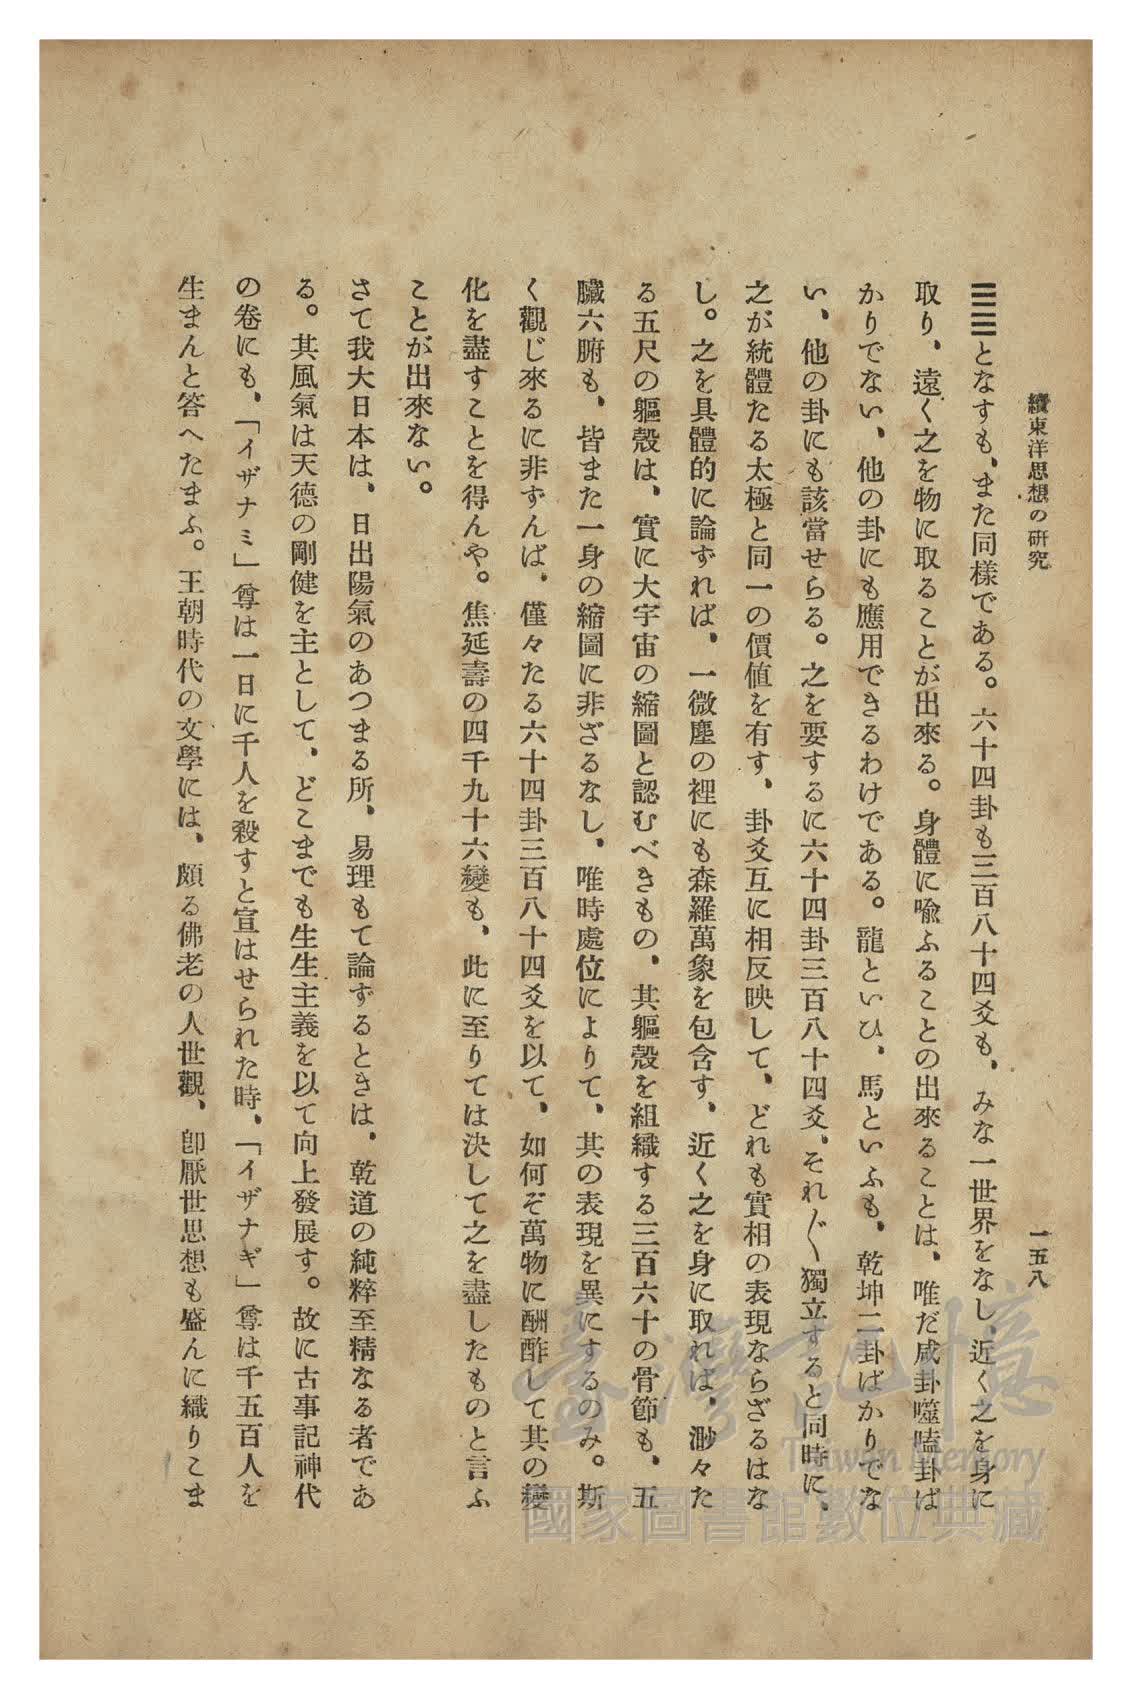 續東洋思想の研究
一五八
となすも、また同樣である。六十四卦も三百八十四爻も、みな一世界をなし、近く之を身に
取り、遠く之を物に取ることが出來る。身體に喩ふることの出來ることは、唯だ咸卦噬嗑卦ば
かりでない、他の卦にも應用できるわけである。龍といひ、馬といふも、乾坤二卦ばかりでな
い、他の卦にも該當せらる。之を要するに六十四卦三百八十四爻、それ〴〵獨立すると同時に、
之が統體たる太極と同一の價値を有す、卦爻互に相反映して、どれも實相の表現ならざるはな
し。之を具體的に論ずれば、一微塵の裡にも森羅萬象を包含す、近く之を身に取れば、渺々た
る五尺の軀殼は、實に大宇宙の縮圖と認むべきもの、其軀殼を組織する三百六十の骨節も、五
臟六腑も、皆また一身の縮圖に非ざるなし、唯時處位によりて、其の表現を異にするのみ。斯
く觀じ來るに非ずんば、僅々たる六十四卦三百八十四爻を以て、如何ぞ萬物に酬酢して其の變
化を盡すことを得んや。焦延壽の四千九十六變も、此に至りては決して之を盡したものと言ふ
ことが出來ない。
さて我大日本は、日出陽氣のあつまる所、易理もて論ずるときは、乾道の純粹至精なる者であ
る。其風氣は天德の剛健を主として、どこまでも生生主義を以て向上發展す。故に古事記神代
の卷にも、「イザナミ」尊は一日に千人を殺すと宣はせられた時、「イザナギ」尊は千五百人を
生まんと答へたまふ。王朝時代の文學には、頗る佛老の人世觀、卽厭世思想も盛んに織りこま
臺灣記憶
Taiwan Memory
國家圖書館數位典藏